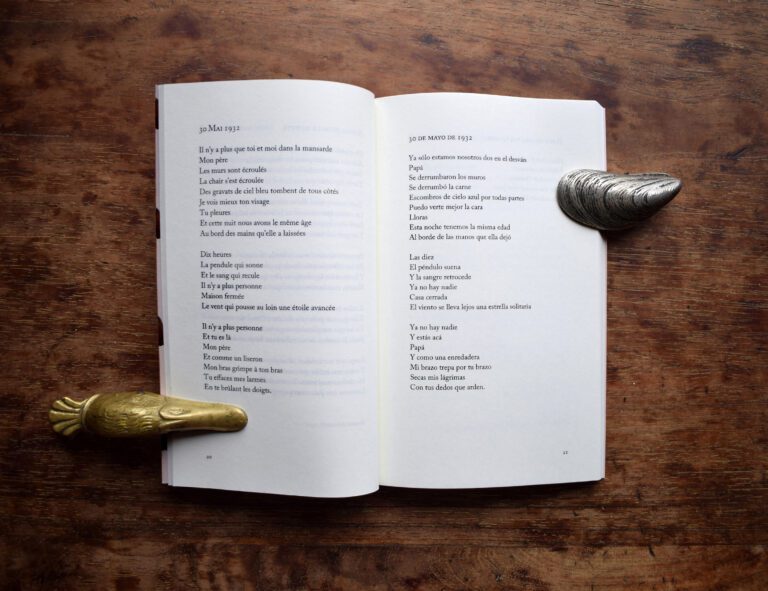 30 Mai 1932
Il n'y a plus que toi et moi dans la mansarde
Mon père
Les murs sont écroulés
La chair s'est écroulée
Des gravats de ciel bleu tombent de tous côtés
Je vois mieux ton visage
Tu pleures
Et cette nuit nous avons le même âge
Au bord des mains qu'elle a laissées
Dix heures
La pendule qui sonne
Et le sang qui recule
Il n'y a plus personne
Maison fermée
Le vent qui pousse au loin une étoile avancée
Il n'y a plus personne
Et tu es là
Mon père
Et comme un liseron
Mon bras grimpe à ton bras
Tu effaces mes larmes
En te brûlant les doigts.
20
30 DE MAYO DE 1932
Ya sólo estamos nosotros dos en el desván
Papá
Se derrumbaron los muros
Se derrumbó la carne
Escombros de cielo azul por todas partes
Puedo verte mejor la cara
Lloras
Esta noche tenemos la misma edad
Al borde de las manos que ella dejó
Las diez
El péndulo suena
Y la sangre retrocede
Ya no hay nadie
Casa cerrada
El viento se lleva lejos una estrella solitaria
Ya no hay nadie
Y estás acá
Papá
Y como una enredadera
Mi brazo trepa por tu brazo
Secas mis lágrimas
Con tus dedos que arden.
21